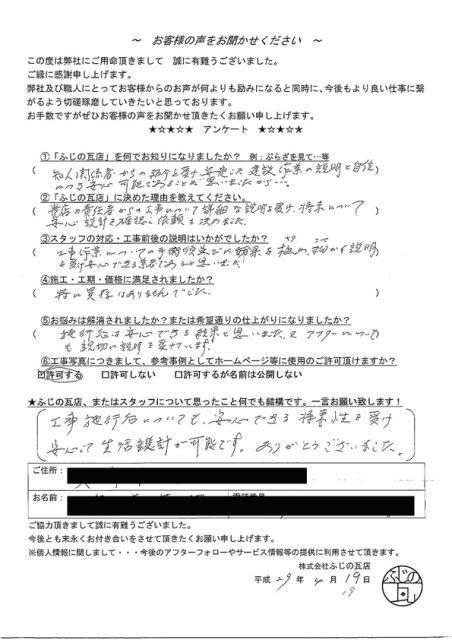 ～ お客様の声をお聞かせください ～
この度は弊社にご用命頂きまして 誠に有難うございました。
ご縁に感謝申し上げます。
弊社及び職人にとってお客様からのお声が何よりも励みになると同時に、今後もより良い仕事に繋
がるよう切磋琢磨していきたいと思っております。
お手数ですがぜひお客様の声をお聞かせ頂きたくお願い申し上げます。
★☆★☆★ アンケート ★☆★☆★
①「ふじの瓦店」を何でお知りになりましたか？ 例：ぷらざを見て…等
関係者からの紹介を受け
②「ふじの瓦店」に決めた理由を教えてください。
貴店の責任者からの工事について詳細な説明を受け、将来について
安心
③スタッフの対応・工事前後の説明はいかがでしたか？
工事作業についての手順 説明
を受け安心できる業者であると思いました！
④施工・工期・価格に満足されましたか？
特に異存はありませんでした。
⑤お悩みは解消されましたか？または希望通りの仕上がりになりましたか？
施行后は安心できる結果と思いました。又アフターについて
も親切に説明を受けています。
⑥工事写真につきまして、参考事例としてホームページ等に使用のご許可頂けますか？
☑許可する □許可しない □許可するが名前は公開しない
★ふじの瓦店、またはスタッフについて思ったこと何でも結構です。一言お願い致します！
工事施行后についても、安心できる将来性を受け
安心して生活設計が可能です。ありがとうございました。
ご住所：
お名前：
ご協力頂きまして誠に有難うございました。
今後とも末永くお付き合いをさせて頂きたくお願い申し上げます。
※個人情報に関しまして・・・今後のアフターフォローやサービス情報等の提供に利用させて頂きます。
株式会社ふじの瓦店
平成 29 年 4 月 19 日
19
ふじの瓦